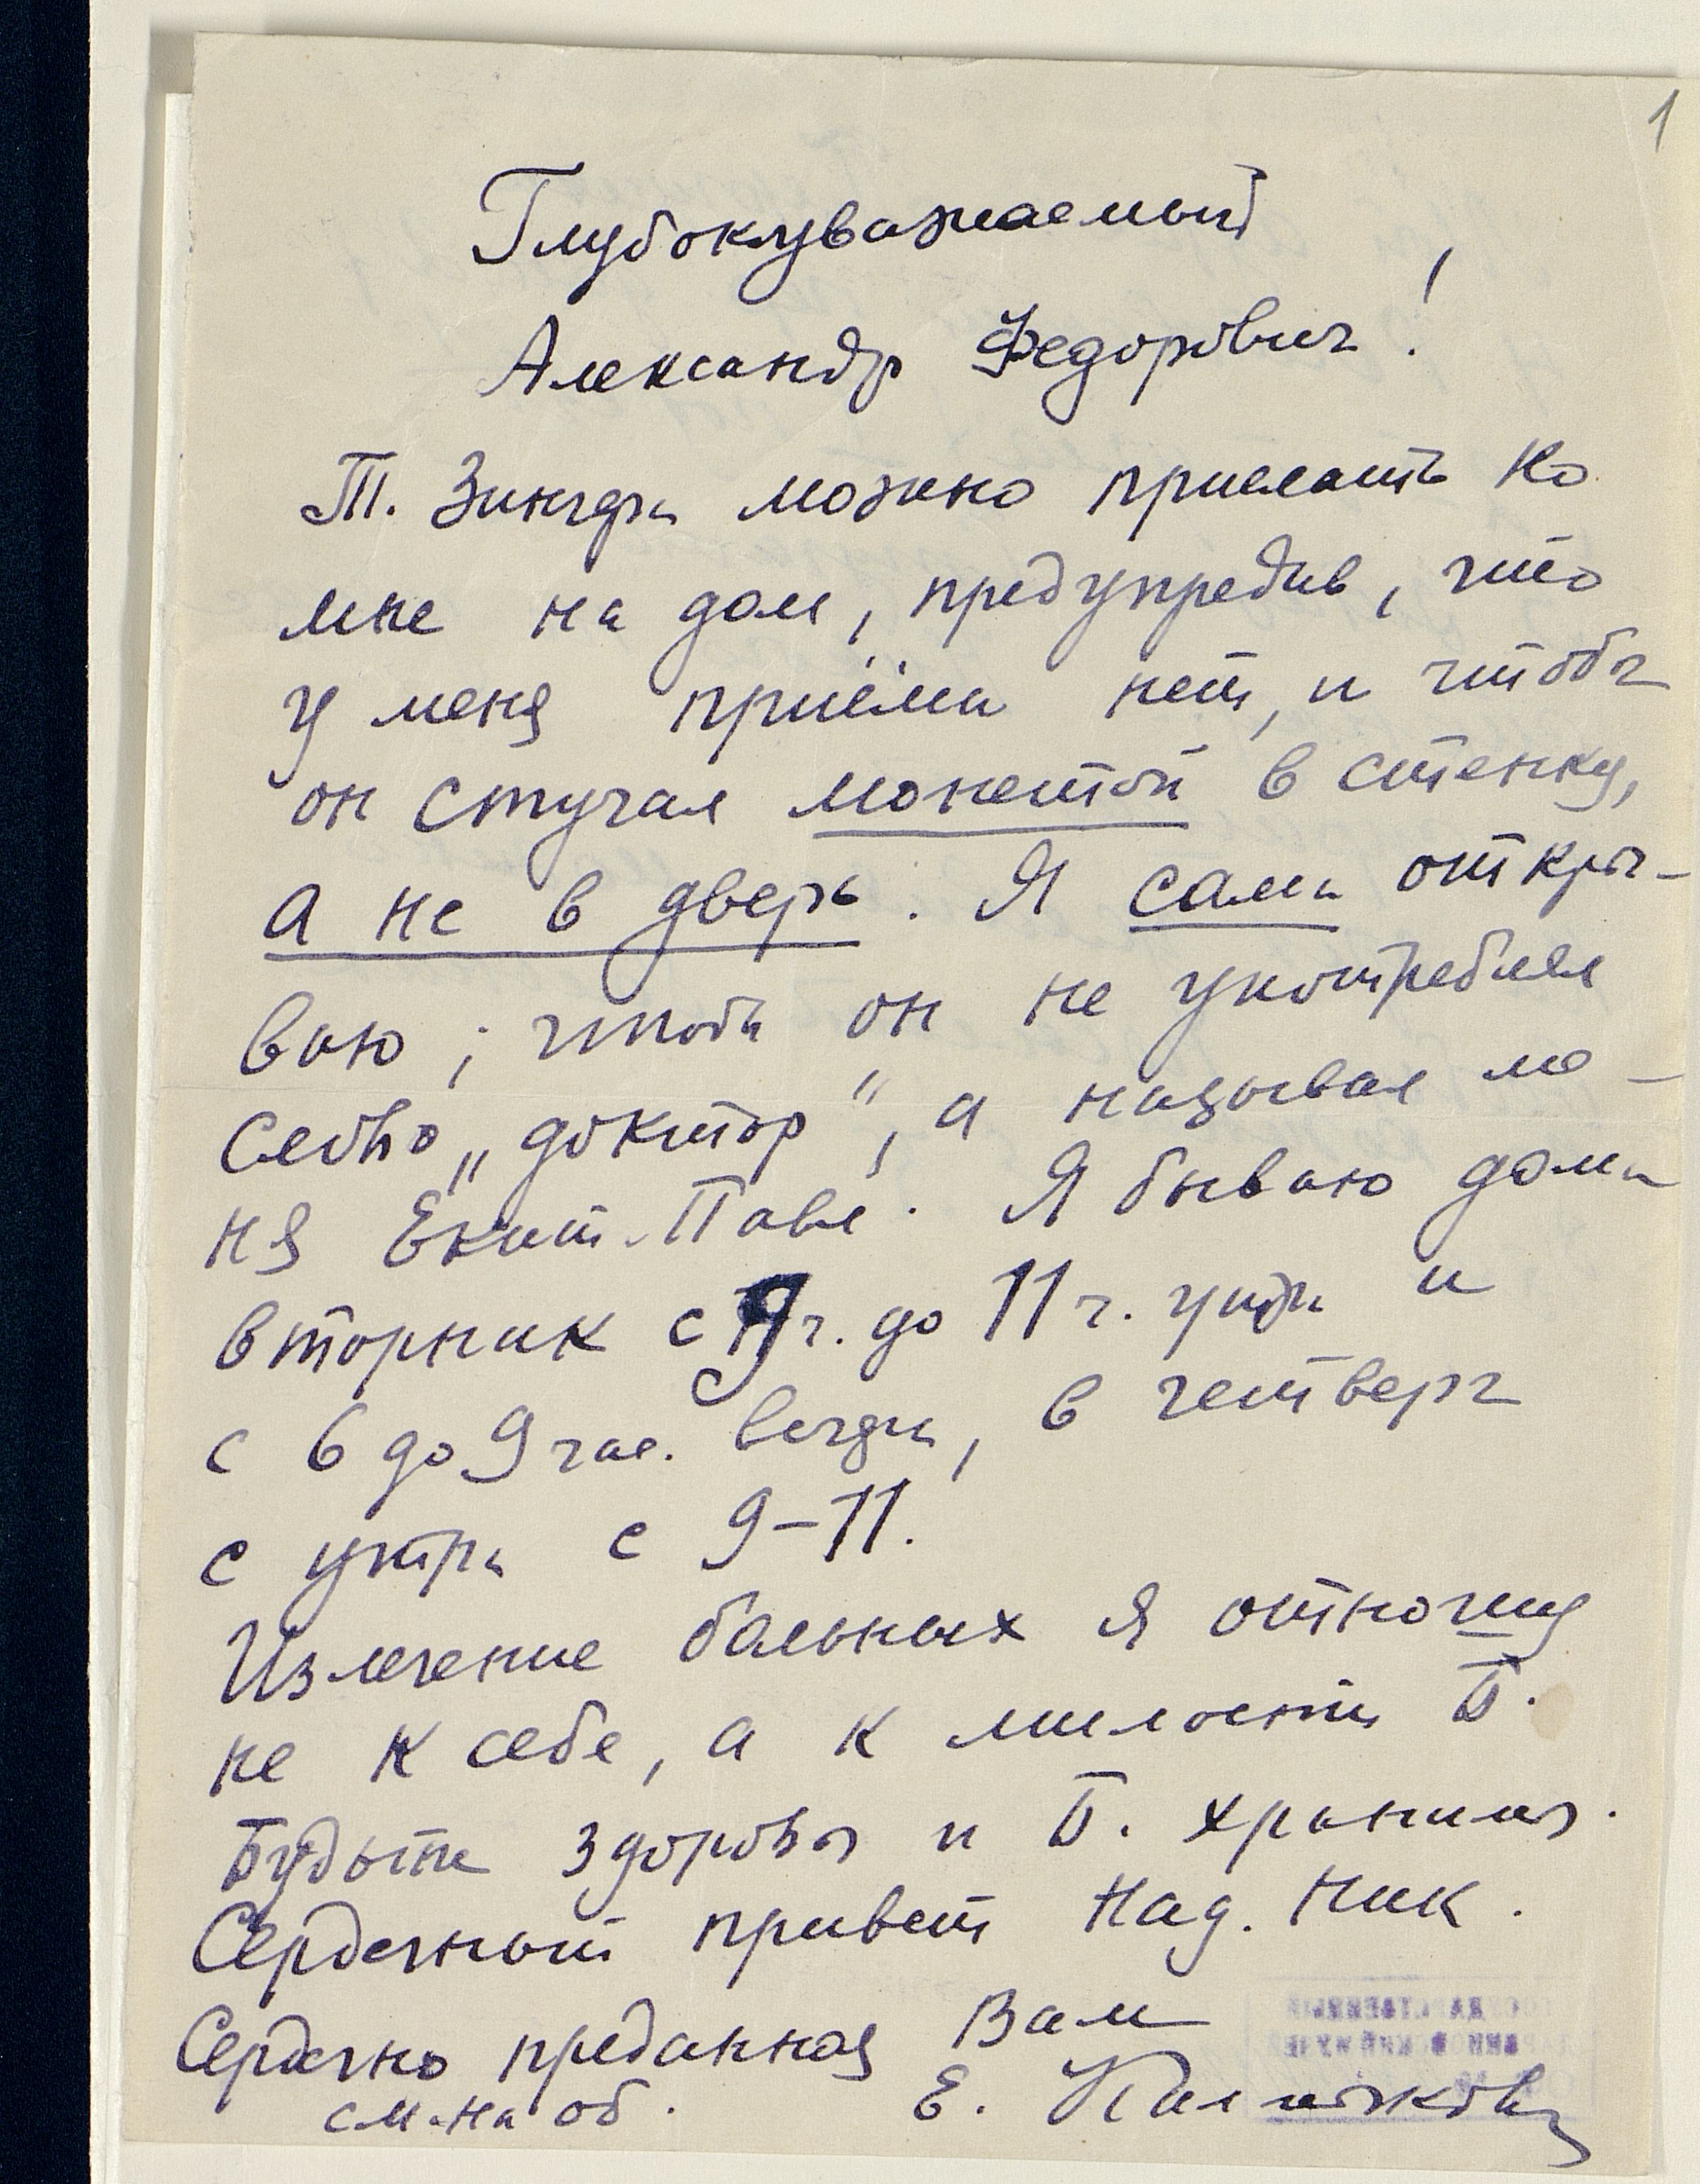 1
Глубокуважаемый
Александр Федорович!
Т. можно прислать ко
мне на дом, предупредив, что
у меня приёма нет, и чтобы
он стучал монетой в стенку,
а не в дверь. Я сама откры-
ваю; чтобы он не употреблял
слово „доктор", а называл ме-
ня Екат. Павл. Я бываю дома
вторник с 9 ч. до 11 ч. утра и
с 6 до 9 час. вечера, в четверг
с утра с 9-11.
Излечение больных я отношу
не к себе, а к милости Б.
Будьте здоровы и Б. хранимы.
Сердечный привет Над. Ник.
Сердечно преданная Вам
Е. Калачкова
см. на об.